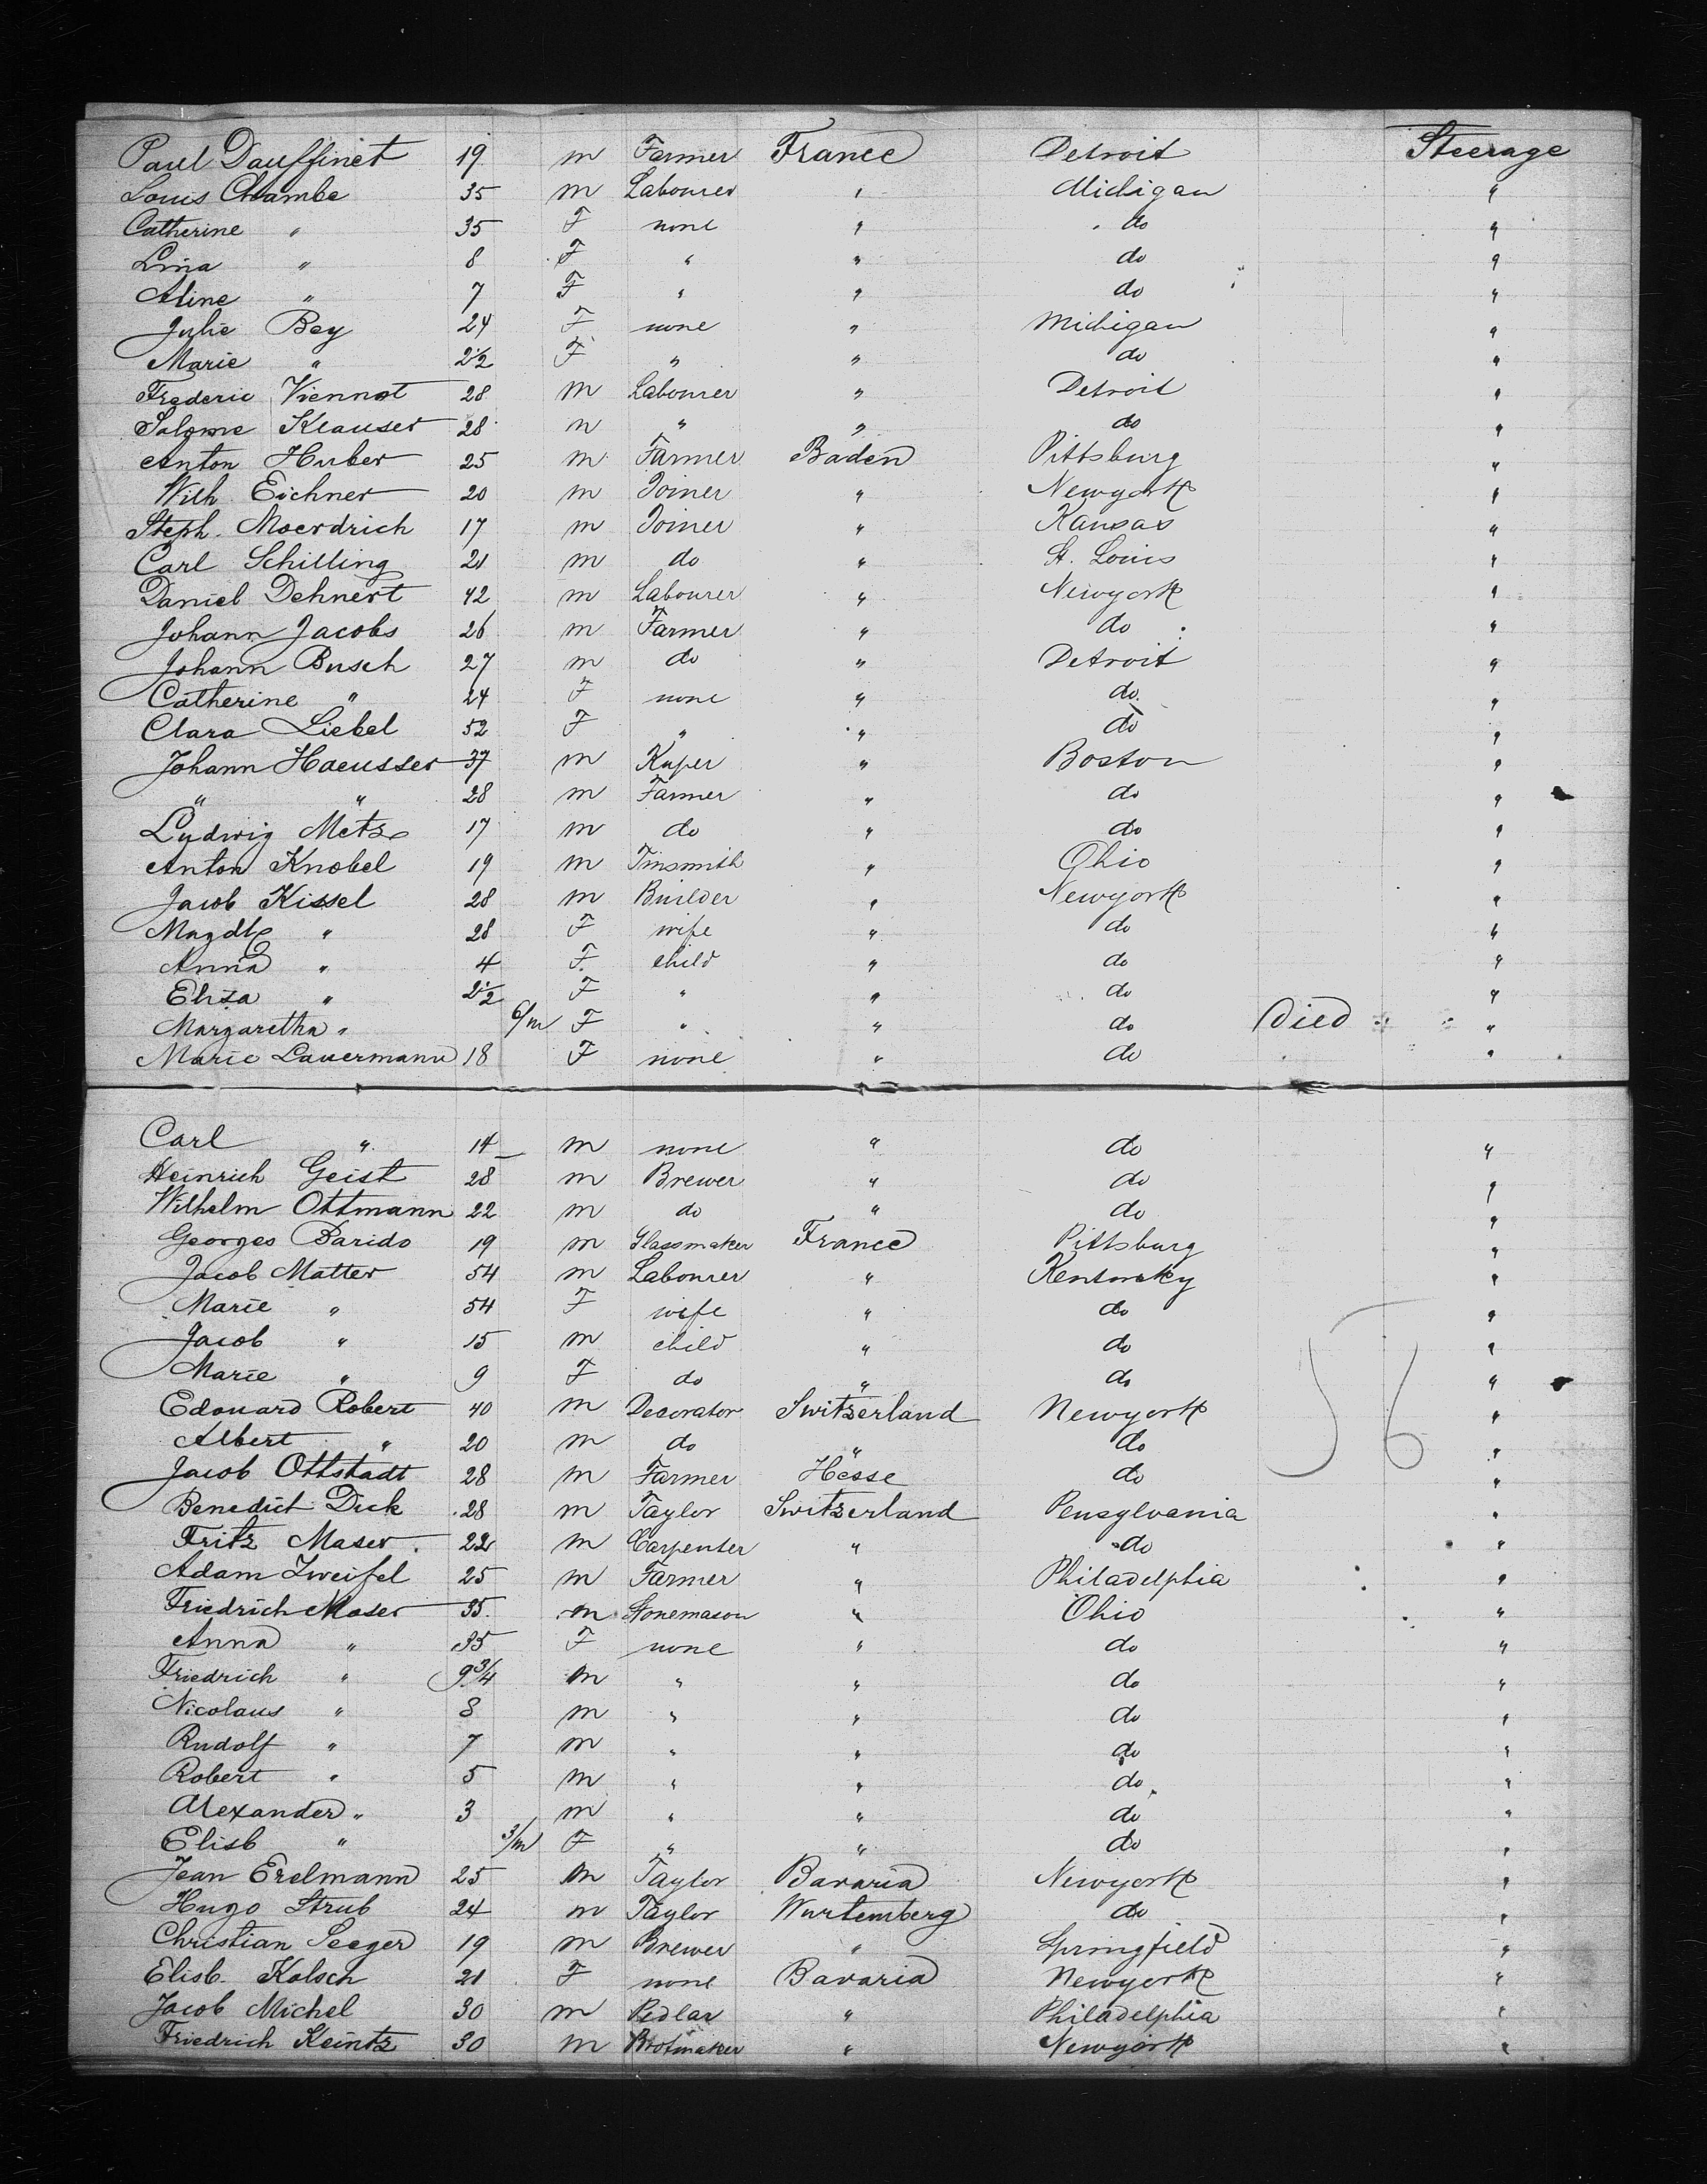 Paul Dauffinet 19 m Farmer France Detroit Steerage
Louis Chambe 35 m Labourer " Michigan "
Catherine " 35 F none " do "
Lina " 8 F " " do "
Aline " 7 F " " do "
Julie Bey 24 F none " Michigan "
Marie " 2 1/2 F " " do "
Frederic Viennot 28 m Labourer " Detroit "
Salome Klauser 28 m " " do "
Anton Huber 25 m Farmer Baden Pittsburg "
Wilh. Eichner 20 m Joiner " Newyork "
Steph. Moerdrich 17 m Joiner " Kansas "
Carl Schilling 21 m do " St. Louis "
Daniel Dehnert 42 m Labourer " Newyork "
Johann Jacobs 26 m Farmer " do "
Johann Busch 27 m do " Detroit "
Catherine " 24 F none " do "
Clara Liebel 52 F " " do "
Johann Haeusser 37 m Kuper " Boston "
" " 28 m Farmer " do "
Ludwig Metz 17 m do " do "
Anton Knobel 19 m Tinsmith " Ohio "
Jacob Kissel 28 m Builder " Newyork "
Magdl " 28 F wife " do "
Anna " 4 F. child " do "
Eliza " 2 1/2 F " " do "
Margaretha " 6/m F " " do Died "
Marie Lauermann 18 F none " do "
Carl " 14 m none " do "
Heinrich Geist 28 m Brewer " do "
Wilhelm Ottmann 22 m do " do "
Georges Barido 19 m Glassmaker France Pittsburg "
Jacob Matter 54 m Labourer " Kentucky "
Marie " 54 F wife " do "
Jacob " 15 m child " do "
Marie " 9 F do " do "
Edouard Robert 40 m Decorator Switzerland Newyork "
Albert " 20 m do " do "
Jacob Ottstadt 28 m Farmer Hesse do "
Benedict Dick 28 m Taylor Switzerland Pensylvania "
Fritz Maser 22 m Carpenter " do "
Adam Zweifel 25 m Farmer " Philadelphia "
Friedrich Moser 35 m Stonemason " Ohio "
Anna " 35 F none " do "
Friedrich " 9 3/4 m " " do "
Nicolaus " 8 m " " do "
Rudolf " 7 m " " do "
Robert " 5 m " " do "
Alexander " 3 m " " do "
Elisb " 3/m F " " do "
Jean Erelmann 25 m Taylor Bavaria Newyork "
Hugo Strub 24 m Taylor Wurtemberg do "
Christian Seeger 19 m Brewer " Springfield "
Elisb. Kolsch 21 F none Bavaria Newyork "
Jacob Michel 30 m Pedlar " Philadelphia "
Friedrich Keintz 30 m " Newyork "
56